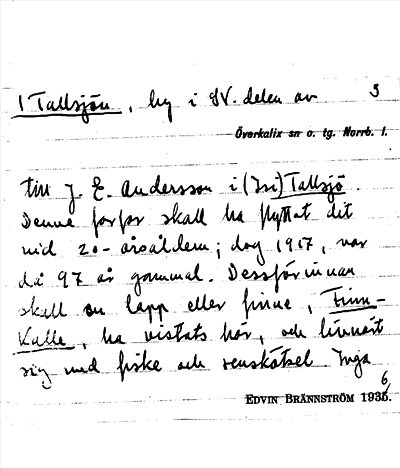 1 Tallsjön, by i SV. delen av 3
Överkalix sn o. tg. Norrb. l.
till J. E. Andersson i (Isi) Tallsjö.
Denne farfar skall ha flyttat dit
vid 20-årsåldern; dog 1917, var
då 97 år gammal. Dessförinnan
skall en lapp eller finne, Finn-
Kalle, ha vistats här, och livnärt
sig med fiske och renskötsel. Inga
6
EDVIN BRÄNNSTRÖM 1935.